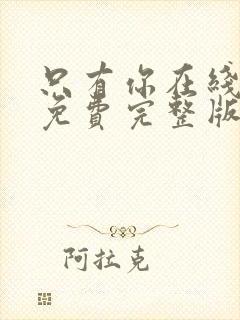 只有你在线
免费完整版
阿拉克